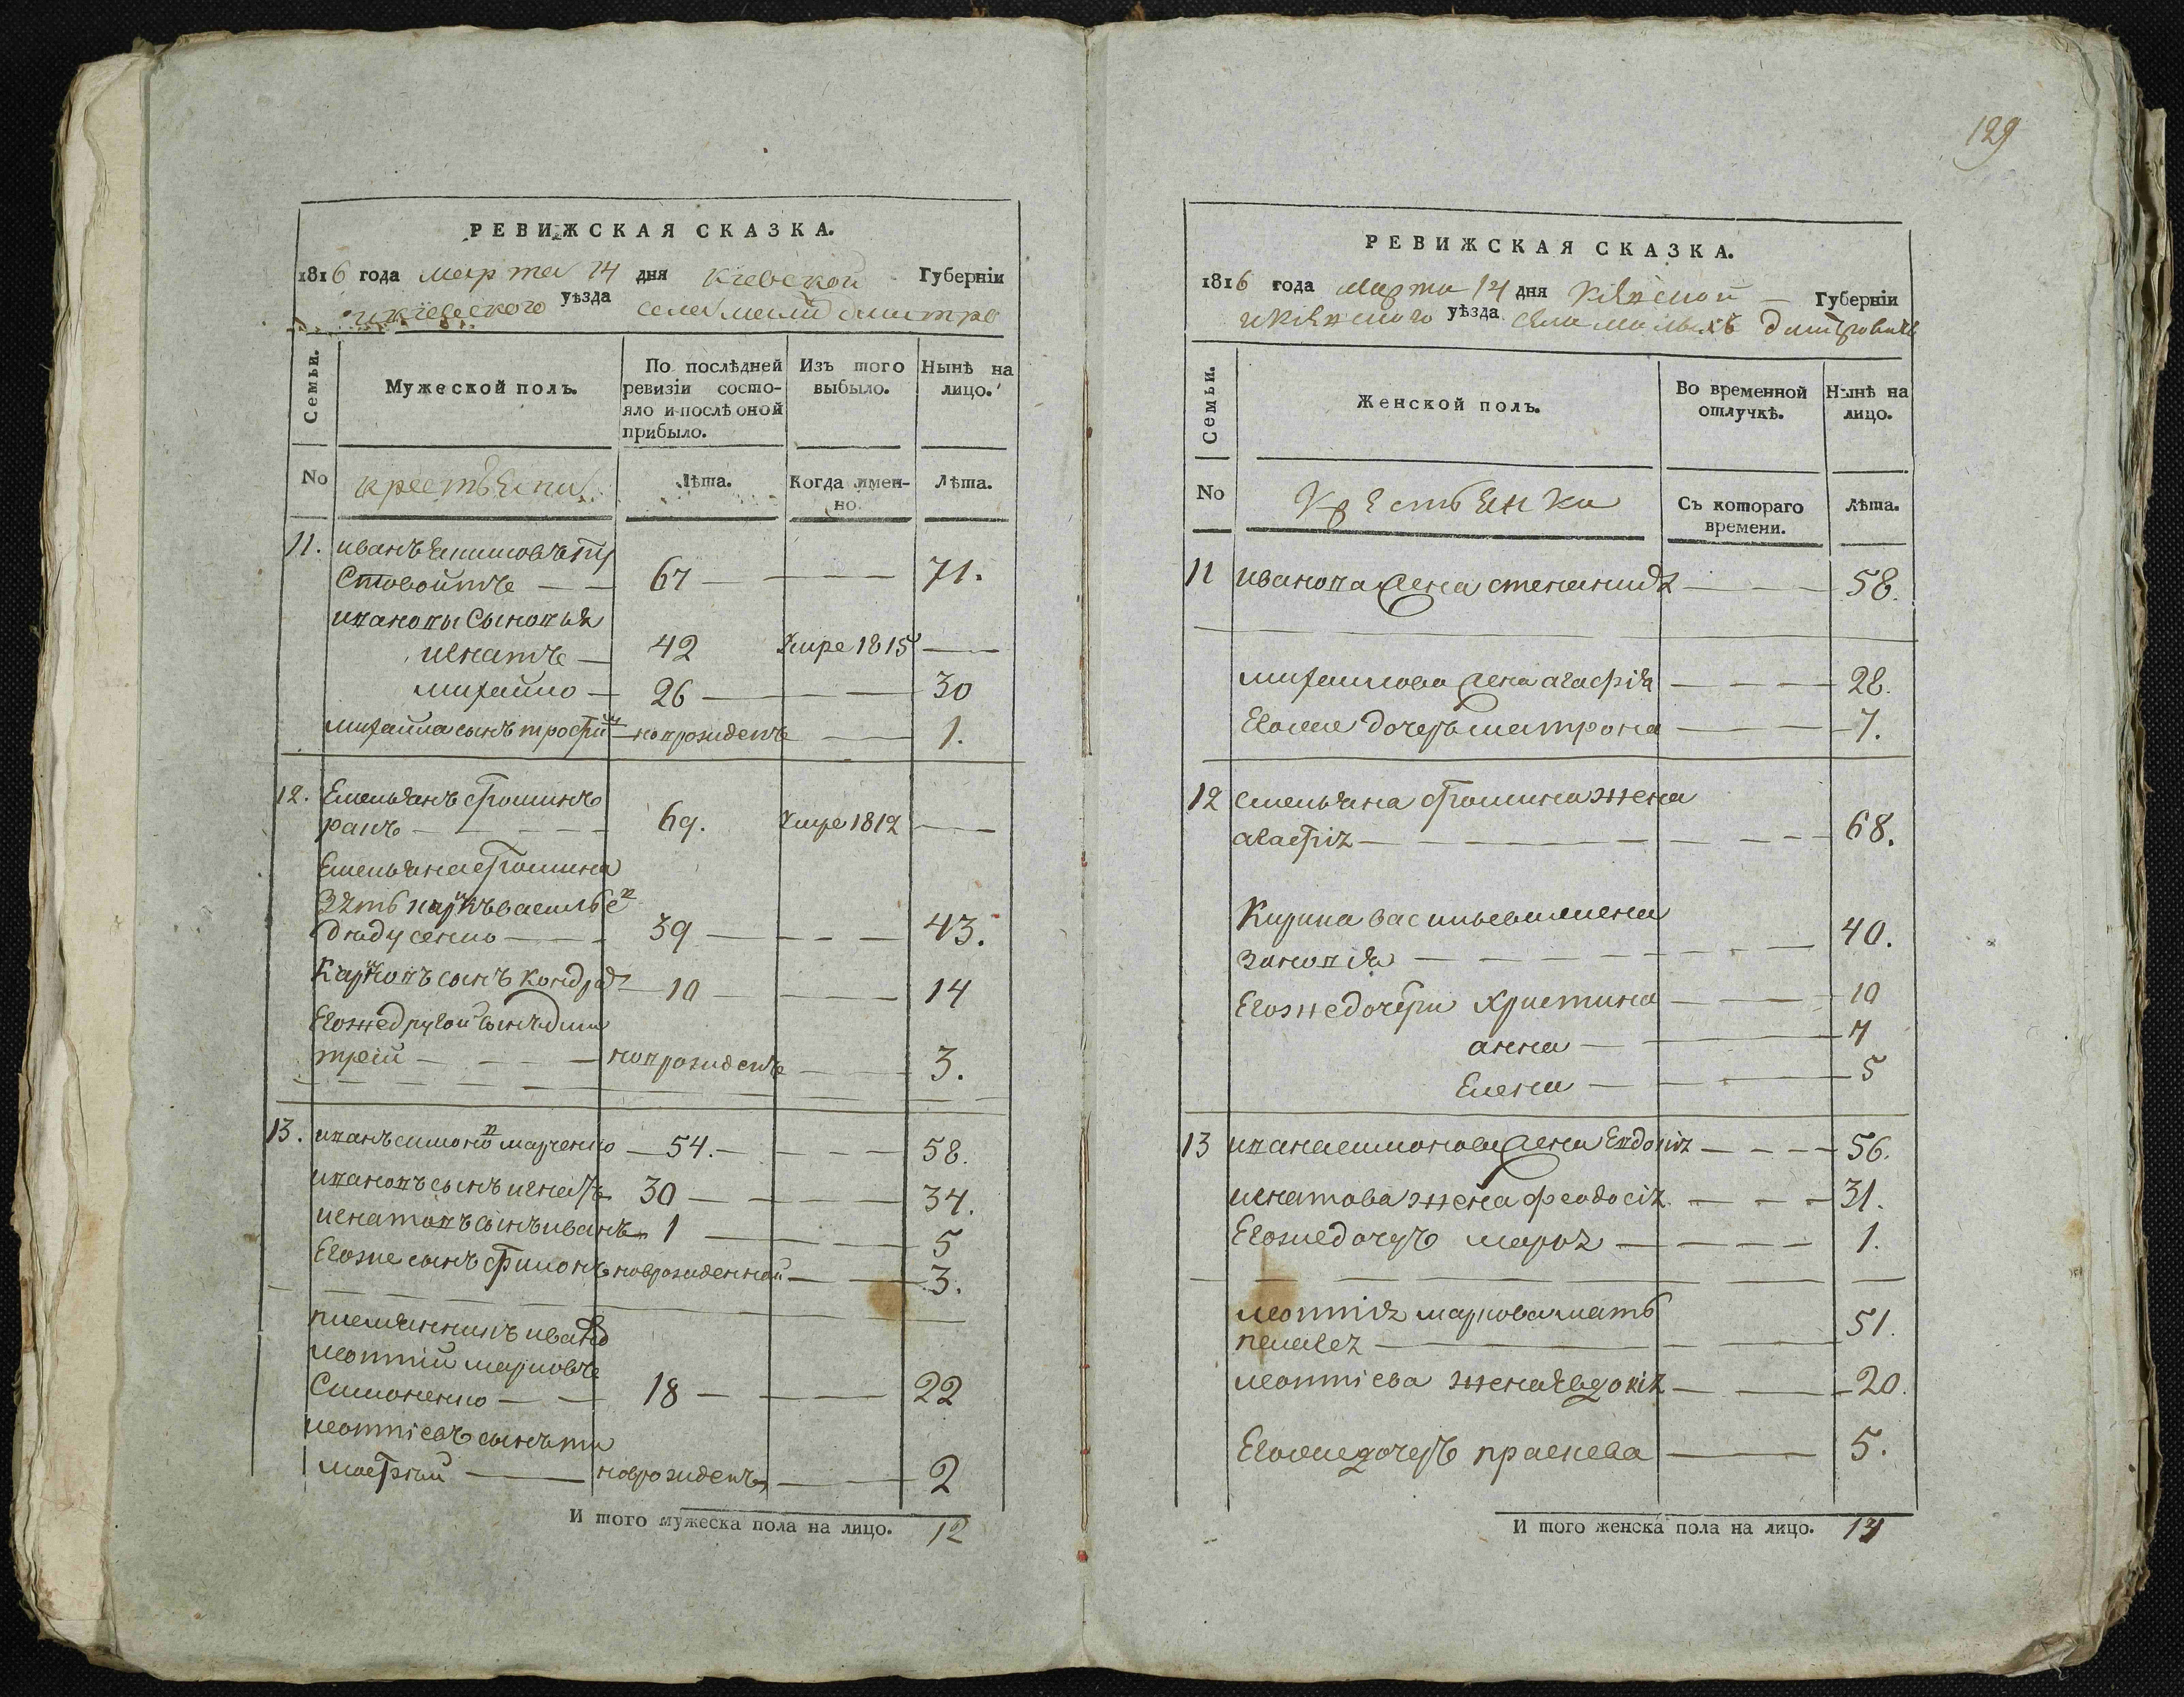 РЕВИЖСКАЯ СКАЗКА.
1816 года марта 14 дня Кіевской Губерніи
и кіевского уѣзда села малой дмитро
Семьи.
Мужеской полъ.
По послѣдней ревизіи состо-
яло и послѣ оной
прибыло.
Изъ того
выбыло.
Нынѣ на
лицо.
No
крестьяни
Лѣта.
Когда имен-
но.
Лѣта.
11. иванъ якимовъ пу
стовойтъ — — 67 — — — 71.
ивановы сыновья
игнатъ — 42 умре 1815 — —
михайло — 26 — — — 30
михайла сынъ трофи — новрожденъ — 1.
12. Емельянъ фоминъ
ранъ — — — — 69. умре 1812 — —
Емельяна фомина
зять карпъ василье
дюдусенко — — 39 — — — — 43.
Карповъ сынъ кондра — 10 — — — 14
Егожедругой сынъ дми
трій — — — новрожденъ — — 3.
13. иванъ симоно марченко — 54. — — — — 58.
ивановъ сынъ игнатъ 30 — — — 34.
игнатовъ сынъ иванъ 1 — — — 5
Егоже сынъ филонъ новрожденной — — 3.
племянникъ ивано
леонтій марковъ
Симоненко — — 18 — — — 22
леонтіевъ сынъ ти
мофтій — новрожденъ — — 2
И того мужеска пола на лицо. 12
129
РЕВИЖСКАЯ СКАЗКА.
1816 года марта 14 дня Кіевской — Губерніи
и кіевского уѣзда села малыхъ дмитровичъ
Семьи.
Женской полъ.
Во временной
отлучкѣ.
Нынѣ на
лицо.
No
Крестьянки
Съ котораго
времени.
Лѣта.
11 иванова жена степанида — — — 58.
михайлова жена агафія — — — 28.
Егоже дочеръ матрона — — 7.
12 емельяна фомина жена
агафія — — — — — — — 68.
Карпа васильева жена
зиновія — — — — — — — 40.
Егожедочери христина — — — 10
анна — — 7
Елена — — — 5
13 ивана симонова жена Евдокія — — — — 56.
игнатова жена феодосія — — — 31.
Егожедочеръ марія — — — — 1.
леонтія маркова мать
пелагея — — — 51.
леонтіева жена явдокія — — — 20.
Егожедочеръ праскева — — 5.
И того женска пола на лицо. 14